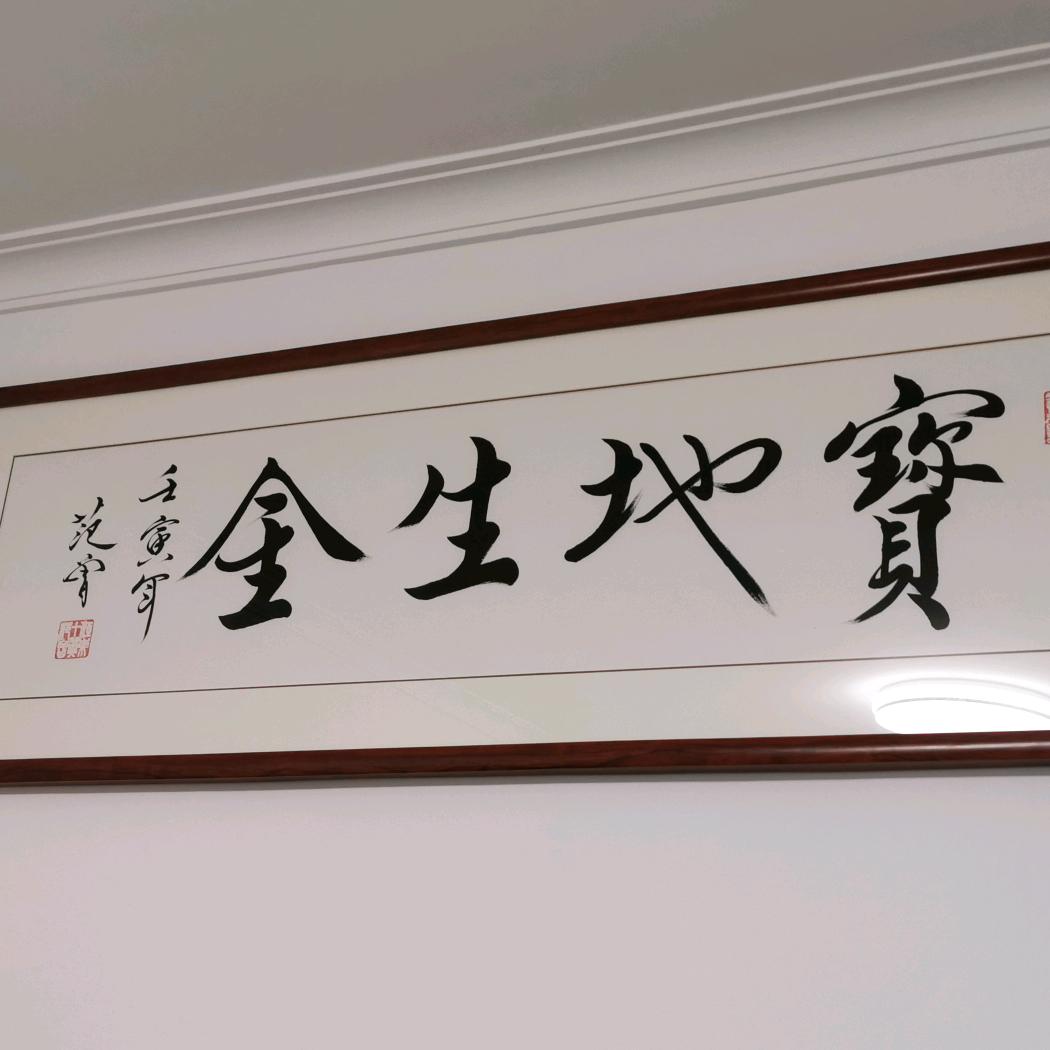 寶地生金
壬寅年
范宵